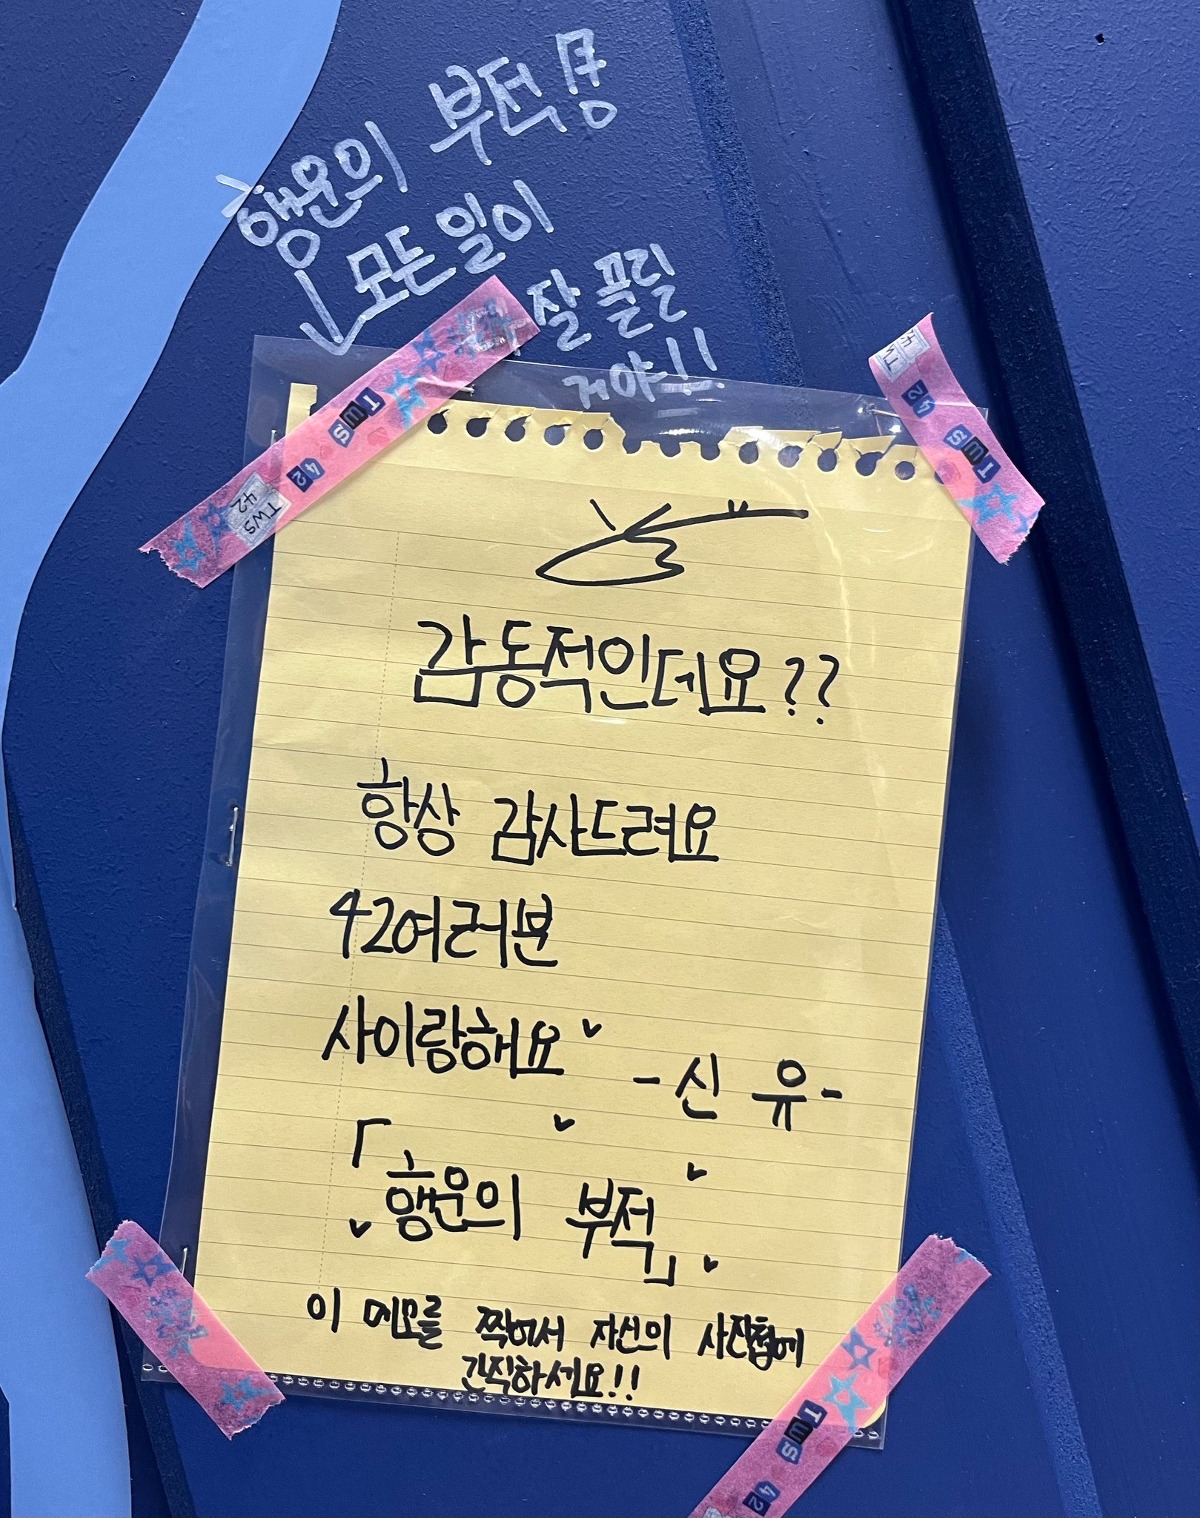 행운의 부적
모든 일이
잘 플릴
거야!!
TWS
42
TWS
42
TWS
42
42
TWS
감동적인데요??
항상 감사드려요
42여러분
사이랑해요
-신 유-
「행운의 부적」
이 메모를 찍어서 자신의 사진첩에
간직하세요!!
TWS
42